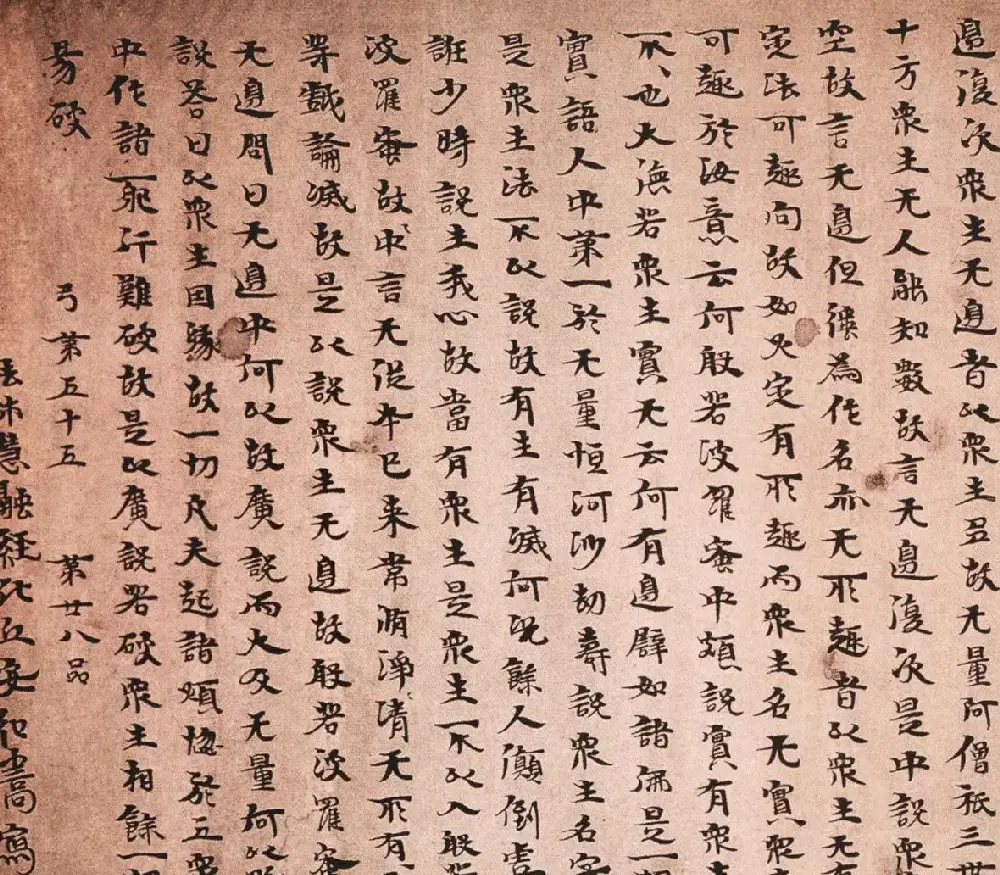 邊復次衆生无邊者以衆生多故无量阿僧祇三世
十方衆生无人能知數故言无邊復次是中説衆
空故言无邊但強為作名亦无所趣者以衆生无有
定法可趣向故如火定有所趣而衆生名无實衆
可趣於汝意云何般若波羅蜜中頗説實有衆
不不也大德若衆生實无云何有邊譬如諸佛是一
實語人中第一於无量恒河沙劫壽説衆生名字
是衆生法不以説故有生有滅何況餘人顛倒虛
誑少時説生我心故當有衆生是衆生不以入般若
波羅蜜故中言无從本已来常清淨清无所有
等戲論滅故是以説衆生无邊故般若波羅蜜
无邊問曰无邊中何以故廣説而大及无量何以
説答曰以衆生因緣故一切凡夫起諸煩惱於五衆
中作諸邪行難破故是以廣説若破衆生相餘一
易破
弓第五十五 第廿八品
法師慧融經比丘安弘嵩寫